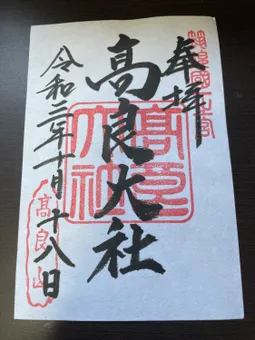 奉拝
高良大社
高良大社
令和三年十月十八日
高良山